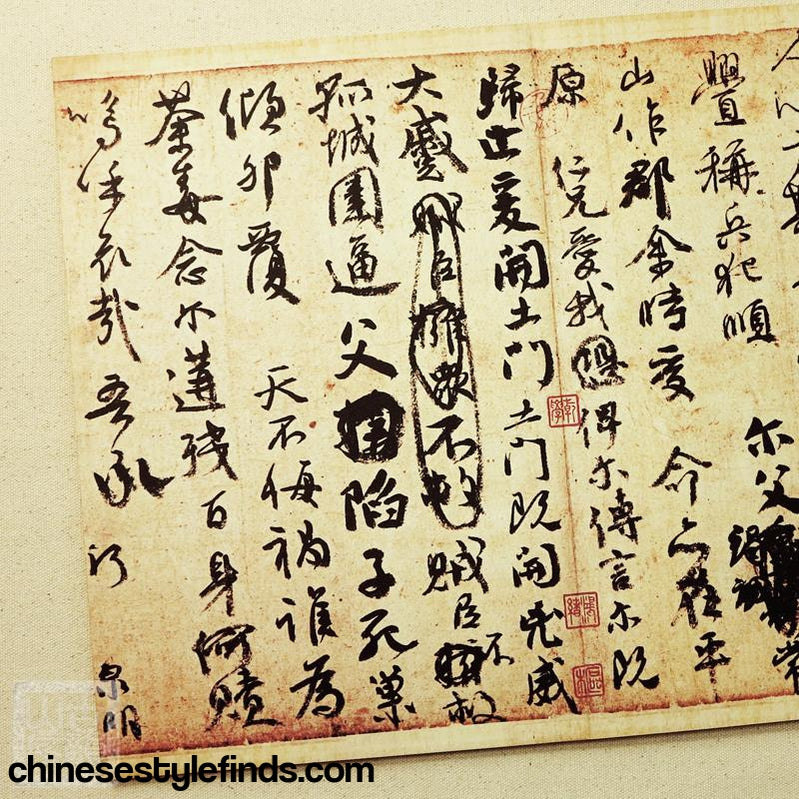 心方期
釁稱兵犯順 尔父竭誠常
山作郡余時受 命亦在平
原 仁兄愛我俾尔傳言尔既
歸止爰開土門土門既開兇威
大蹙賊臣擁衆不救賊臣不救
孤城圍逼父陷子死巢
傾卵覆 天不悔禍誰為
荼毒念尔遘殘百身何贖
嗚呼哀哉吾承 泉明
chinesestylefinds.com